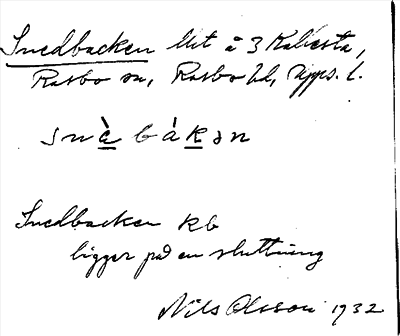 Snedbacken lht å 3 Kallesta,
Rasbo sn, Rasbo hd, Upps. l.
snὲ bàkən
Snedbacken Kb
ligger på en sluttning
Nils Olsson 1932